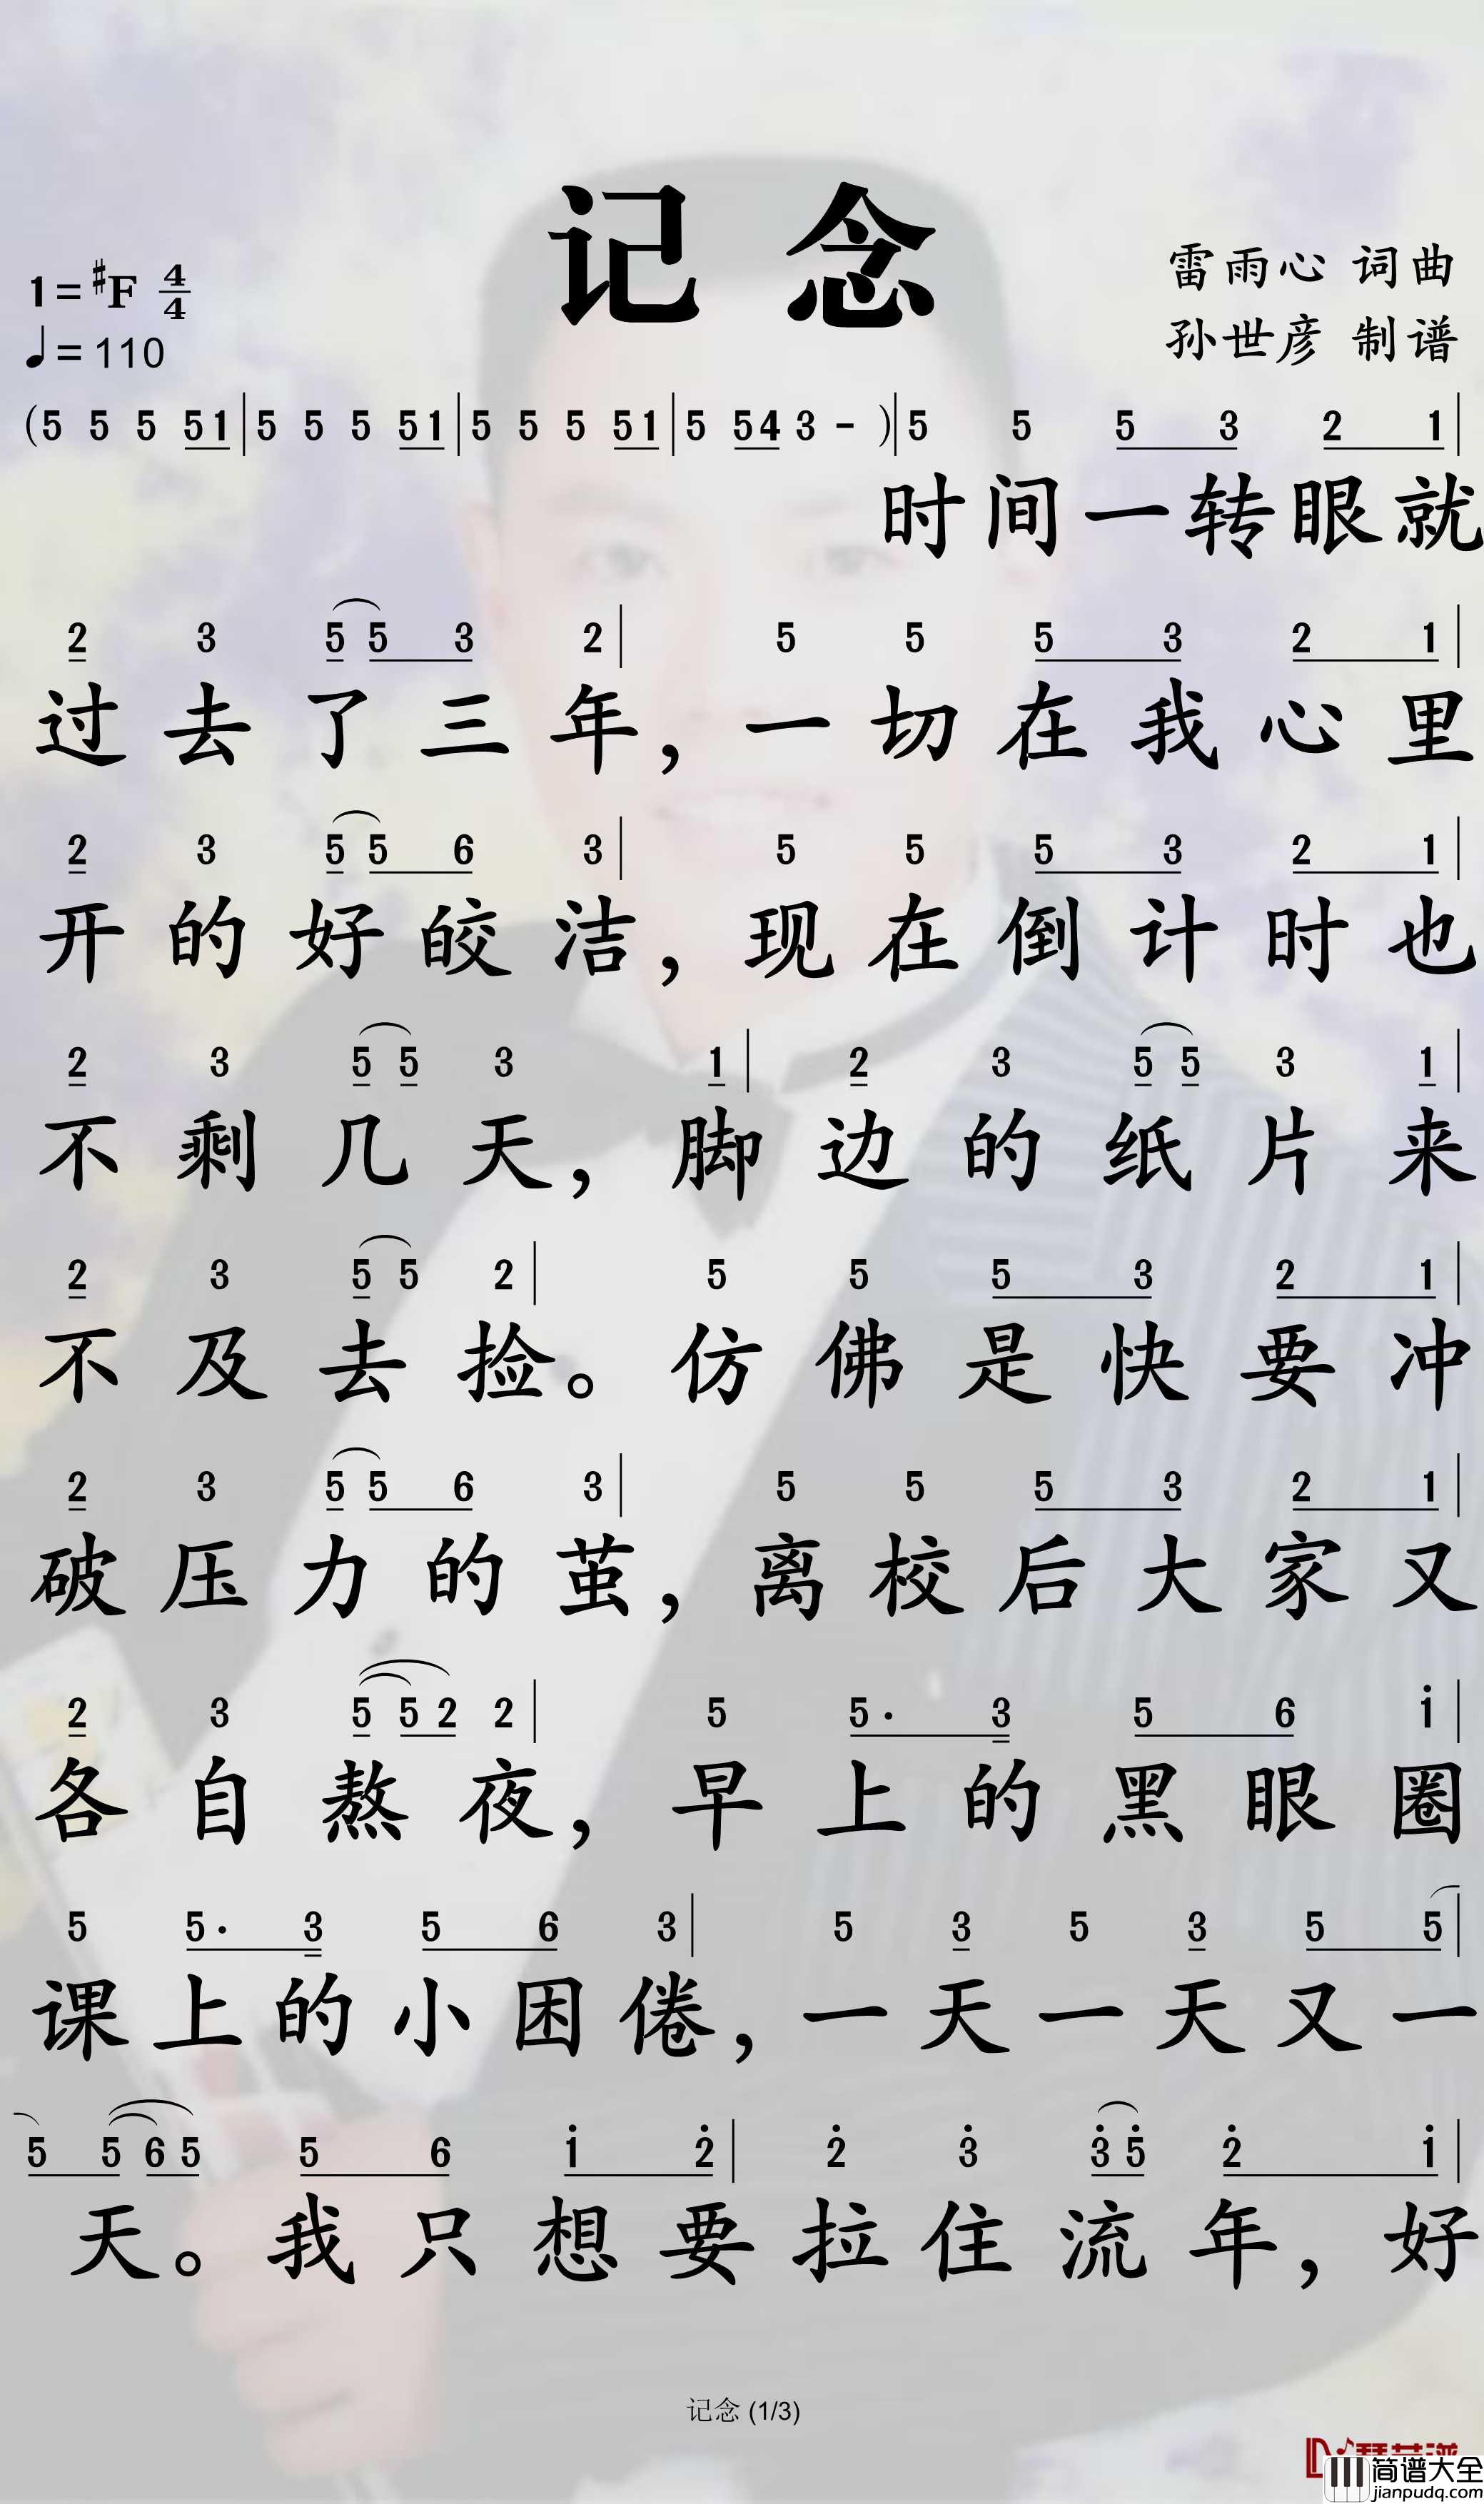 记 念
1=#F 4/4
♩=110
雷雨心 词曲
孙世彦 制谱
(5 5 5 51|5 5 5 51|5 5 5 51|5 54 3 - )|5 5 5 3 2 1|
时间一转眼就
2 3 5 5 3 2| 5 5 5 3 2 1|
过去了三年，一切在我心里
2 3 5 5 6 3| 5 5 5 3 2 1|
开的好皎洁，现在倒计时也
2 3 5 5 3 1| 2 3 5 5 3 1|
不剩几天，脚边的纸片来
2 3 5 5 2| 5 5 5 3 2 1|
不及去捡。仿佛是快要冲
2 3 5 5 6 3| 5 5 5 3 2 1|
破压力的茧，离校后大家又
2 3 5 5 2 2| 5 5· 3 5 6 i|
各自熬夜，早上的黑眼圈
5 5· 3 5 6 3| 5 3 5 3 5 5|
课上的小困倦，一天一天又一
5 5 6 5 5 6 1̇ 2̇| 2̇ 3̇ 3̇ 5̇ 2̇ 1̇|
天。我只想要拉住流年，好
记念 (1/3)
简谱大全
jianpudq.com